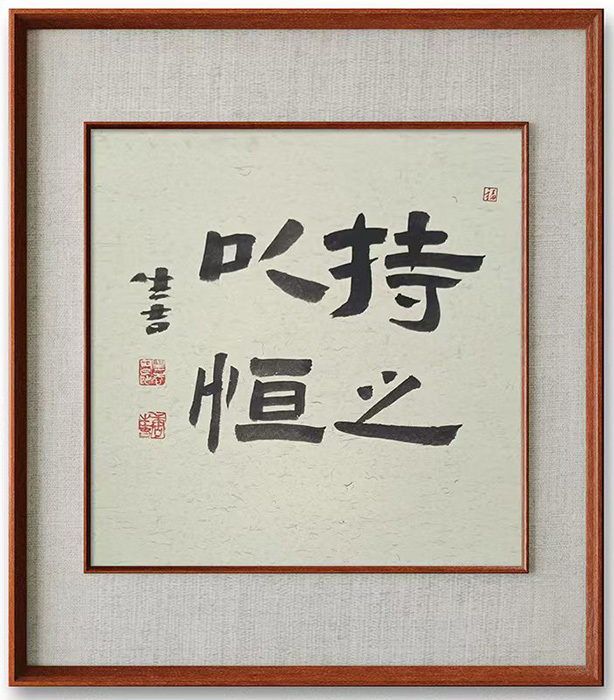 持之
以恒